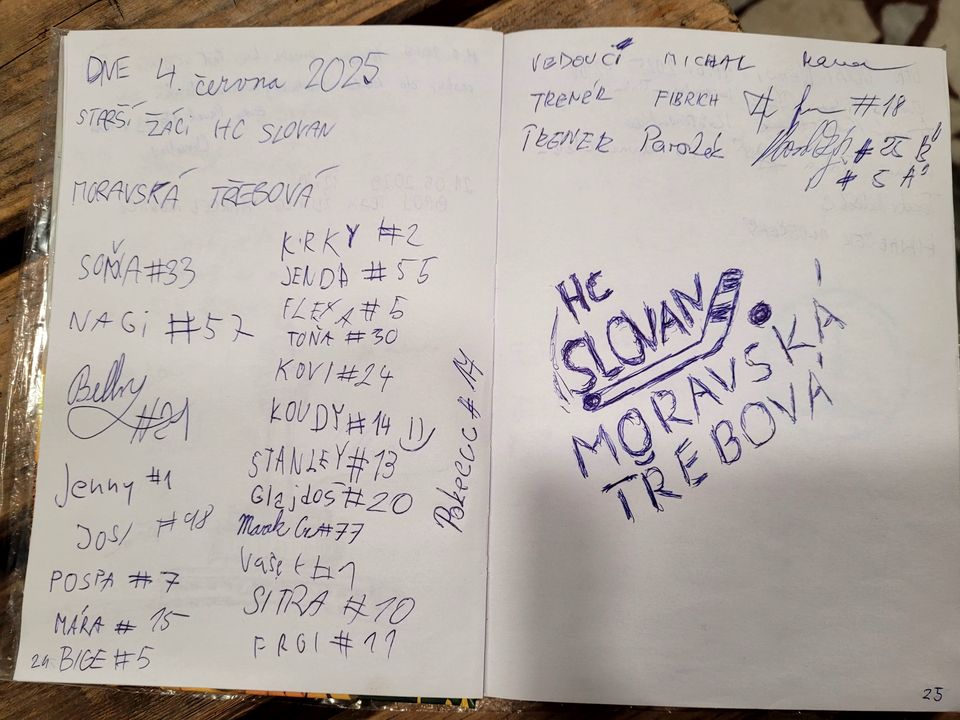 DNE 4. června 2025
STARŠÍ ŽÁCI HC SLOVAN
MORAVSKÁ TŘEBOVÁ
SOŇA #33
NAGI #57
Belby #21
Jenny #1
JOSI #98
POSPA #7
MÁRA # 15
BIGE #5
KIRKY #2
JENDA #55
FLEXA #5
TOŇA #30
KOVI #24
KOUDY #14 :)
STANLEY #13
Glajdoš #20
Marek Čr #77
Vašek #1
SITRA #10
FRGI #11
#14
24
VEDOUCÍ MICHAL
TRENÉR FIBRICH #18
TRENÉR Parožek # 25 "B"
# 5 "A"
HC
SLOVAN
MORAVSKÁ
TŘEBOVÁ
25